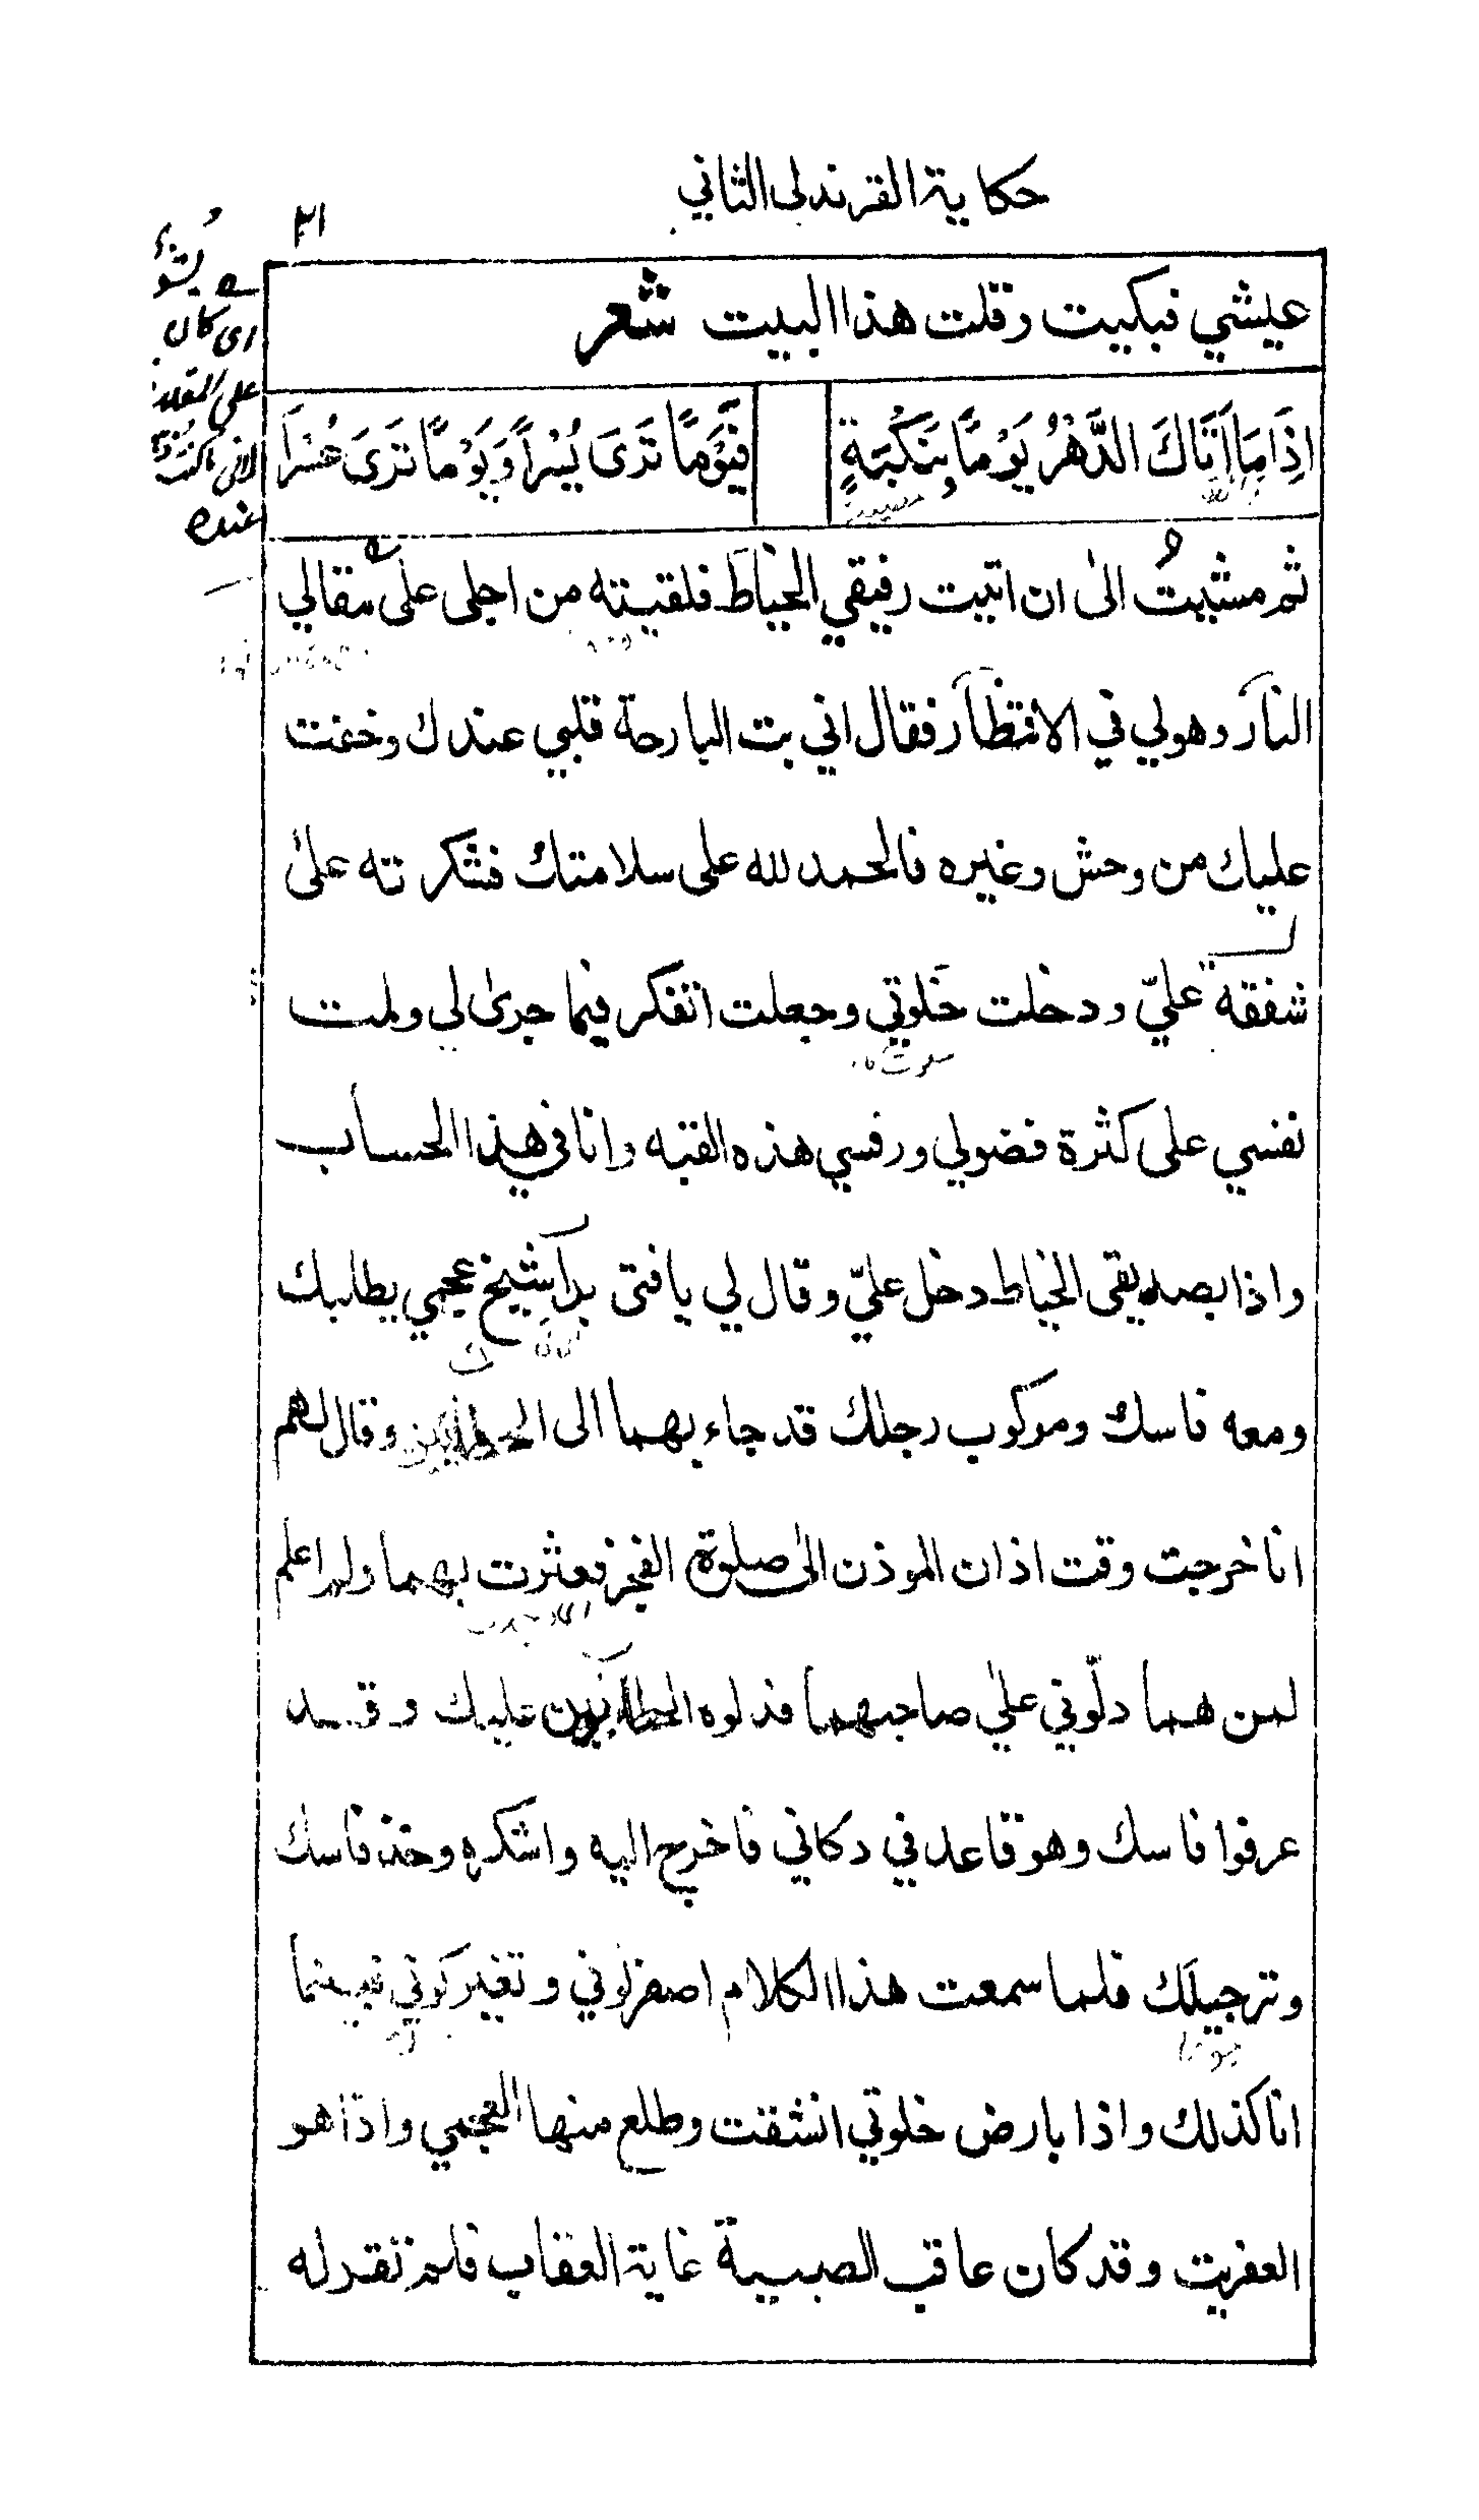 حكاية القرندلى الثاني
٢١
عيشي فبكيت وقلت هذا البيت شعر
اِذَا مَا اَتَاكَ الدَّهْرُ يَوْمًا بِنَكْبَةٍ فَيَوْمًا تَرَى يُسْراً وَيَوْمًا تَرَى عُسْرَا
ثم مشيتُ الى ان اتيت رفيقي الخياط فلقيته من اجلى على مقالي
النار وهو لي في الانتظار فقال اني بت البارحة قلبي عندك وخفت
عليك من وحش وغيره فالحمد لله على سلامتك فشكرته على
شفقة عليّ ودخلت خَلوتي وجعلت اتفكر فيما جرى لي ولمت
نفسي على كثرة فضولي ورفسي هذه القبه وانا في هذا الحساب
واذا بصديقى الخياط دخل عليّ وقال لي يا فتى برا شيخ عجمي يطلبك
ومعه فاسك ومركوب رجلك قد جاء بهما الى الخياطين وقال لهم
انا خرجت وقت اذان الموذن الى صلوة الفجر فعثرت بهما ولم اعلم
لمن هما دلّوني على صاحبهما فدلوه الخياطين عليك وقد
عرفوا فاسك وهو قاعد في دكاني فاخرج اليه واشكره وخذ فاسك
وترجيلك فلما سمعت هذا الكلام اصفر لوني وتغير كوني فبينما
انا كذلك واذا بارض خلوتي انشقت وطلع منها العجمي واذا هو
العفريت وقد كان عاقب الصبية غاية العقاب فلم تقر له
ى كان
على
عنده